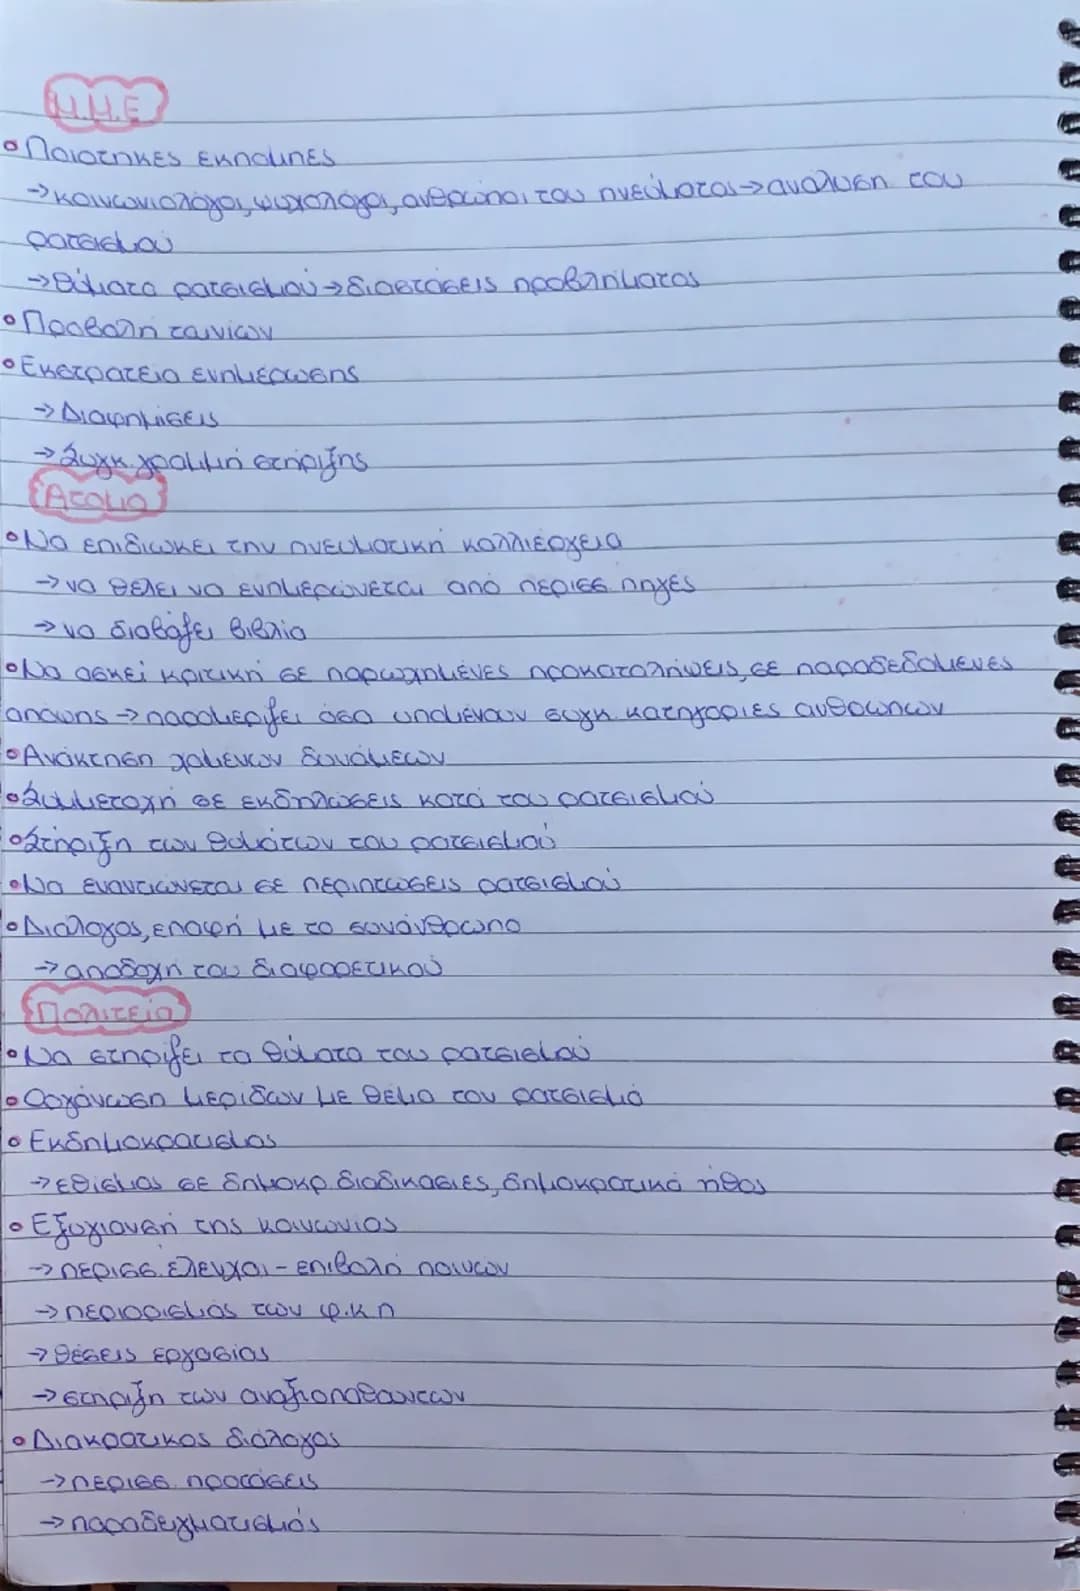 Μ.Μ.Ε
• Ποιοτηκές εκπομπές
→ κοινωνιολόγοι, ψυχολόγοι, ανθρώποι του πνεύματος → ανάλυση του
ρατσισμού
→ θύματα ρατσισμού → διαστάσεις προβλήματος
• Προβολή ταινιών
• Εκστρατεία ενημέρωσης
→ Διαφημίσεις
→ Συγκ. γραμμή στήριξης
Άτομο
• Να επιδιώκει την πνευματική καλλιέργεια
→ να θέλει να ενημερώνεται από περισσ. πηγές
→ να διαβάζει βιβλία
• Να ασκεί κριτική σε παρωχημένες προκαταλήψεις, σε παραδεδομένες
απόψης → παραμερίζει όσα υπομένουν συγκ. κατηγορίες ανθρώπων
• Ανάκτηση χαμένων δυνάμεων
• Συμμετοχή σε εκδηλώσεις κατά του ρατσισμού
• Στήριξη των θυμάτων του ρατσισμού
• Να εναντιώνεται σε περιπτώσεις ρατσισμού
• Διάλογος, επαφή με το συνάνθρωπο
→ αποδοχή του διαφορετικού
Πολιτεία
• Να στηρίζει τα θύματα του ρατσισμού
• Οργάνωση μερίδων με θέμα τον ρατσισμό
• Εκδημοκρατισμός
→ εθισμός σε δημοκρ. διαδικασίες, δημοκρατικό ήθος
• Εξυγίανση της κοινωνίας
→ περισσ. έλεγχοι - επιβολή ποινών
→ περιορισμός των φ.κ.π
→ θέσεις εργασίας
→ στηριξη των αναξιοπαθούντων
• Διακρατικός διάλογος
→ περισσ. προτάσεις
→ παραδειγματισμός